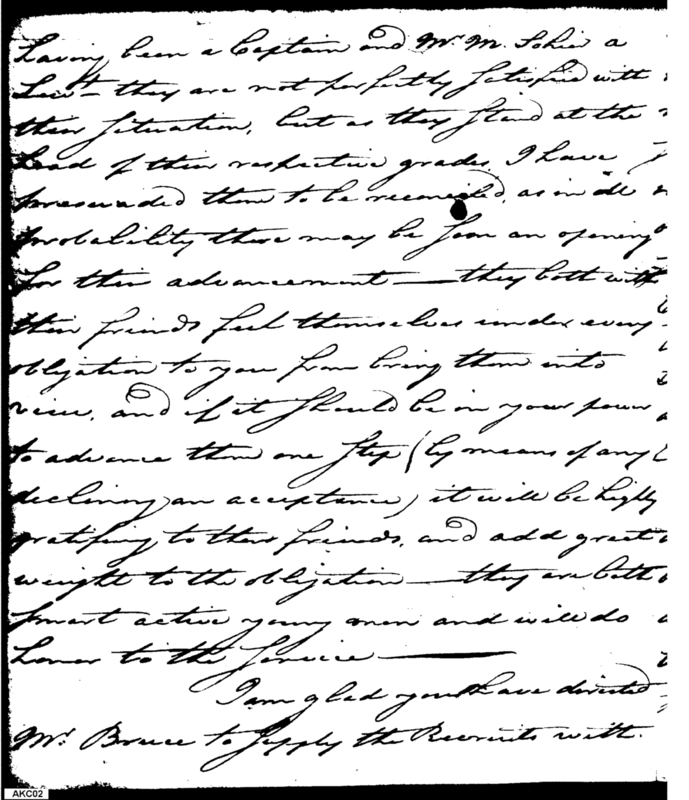 having been a Captain and Mr. M. Sohier a
Lieut — they are not perfectly satisfied with
their situation, but as they stand at the
head of their respective grades, I have
preswaded them to be reconciled, as in all
probability there may be soon an opening
for their advancement — they both with
their friends feel themselves under every
obligation to you from bring them into
view, and if it should be in your power
to advance them one step (by means of any
declining an acceptance) it will be highly
gratifying to their friends, and add great
weight to the obligation — they are both
smart active young men and will do
honor to the service —
I am glad you have directed
Mr. Bruce to supply the Recruits with
AKC02